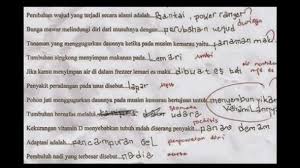 Perubahan wujud yang terjadi secara alami adalah... Bantai, power ranger
Bunga mawar melindungi diri dari musuhnya dengan... perubahan wujud durinya
Tanaman yang menggugurkan daunnya ketika pada musim kemarau yaitu... panaman mak
Tumbuhan singkong menyimpan makanan pada... Lemari umbi
Jika kamu menyimpan air di dalam freezer lemari es maka... dibuat es teh
Penyakit peradangan pada usus disebut... lapar
Pohon jati menggugurkan daunnya pada musim kemarau bertujuan untuk... menyembunyikan
Tumbuhan bernapas melalui... udara stomata
Kekurangan vitamin D menyebabkan tubuh mudah diserang penyakit... panas demam
Adaptasi adalah... pencampuran gel penyesuaian diri
Pembuluh nadi yang terbesar disebut... nadia aorta